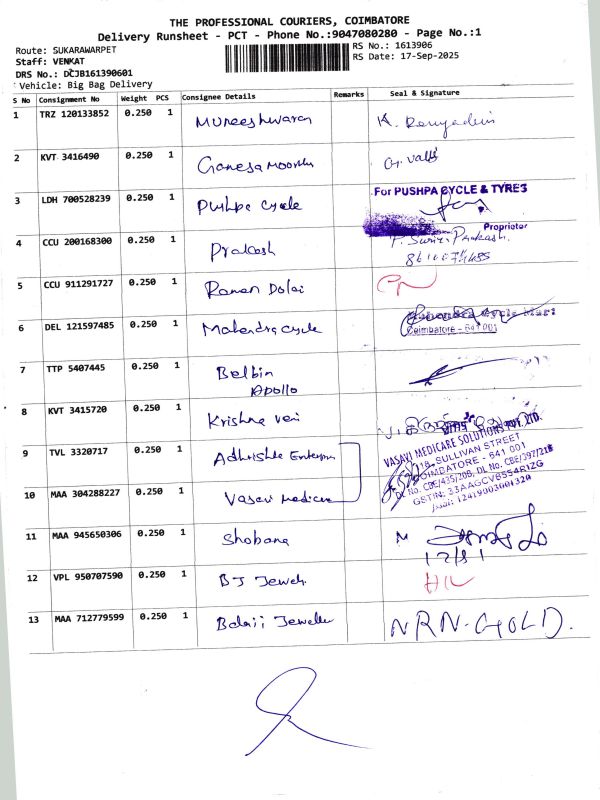 THE PROFESSIONAL COURIERS, COIMBATORE
Delivery Runsheet - PCT - Phone No.:9047080280 - Page No.:1
Route: SUKARAWARPET
RS No.: 1613906
Staff: VENKAT
RS Date: 17-Sep-2025
DRS No.: DCJB161390601
Vehicle: Big Bag Delivery
S No Consignment No Weight PCS Consignee Details Remarks Seal & Signature
1 TRZ 120133852 0.250 1 Muneeshwaran K.
2 KVT 3416490 0.250 1 Ganesa Moorthi G. Valli
3 LDH 700528239 0.250 1 Pushpa Cycle For PUSHPA CYCLE & TYRES
Proprietor
4 CCU 200168300 0.250 1 Prakash
5 CCU 911291727 0.250 1 Raman Dolai
6 DEL 121597485 0.250 1 Mahendra Cycle
Coimbatore - 641 001
7 TTP 5407445 0.250 1 Belbin
Apollo
8 KVT 3415720 0.250 1 Krishna veni
9 TVL 3320717 0.250 1 VASAVI MEDICARE SOLUTIONS PVT. LTD.
SULLIVAN STREET
COIMBATORE - 641 001
10 MAA 304288227 0.250 1 Vasavi Medicare
11 MAA 945650306 0.250 1 Shobana
12 VPL 950707590 0.250 1 BJ Jewels
13 MAA 712779599 0.250 1 Balaji Jeweller NRN-GOLD.